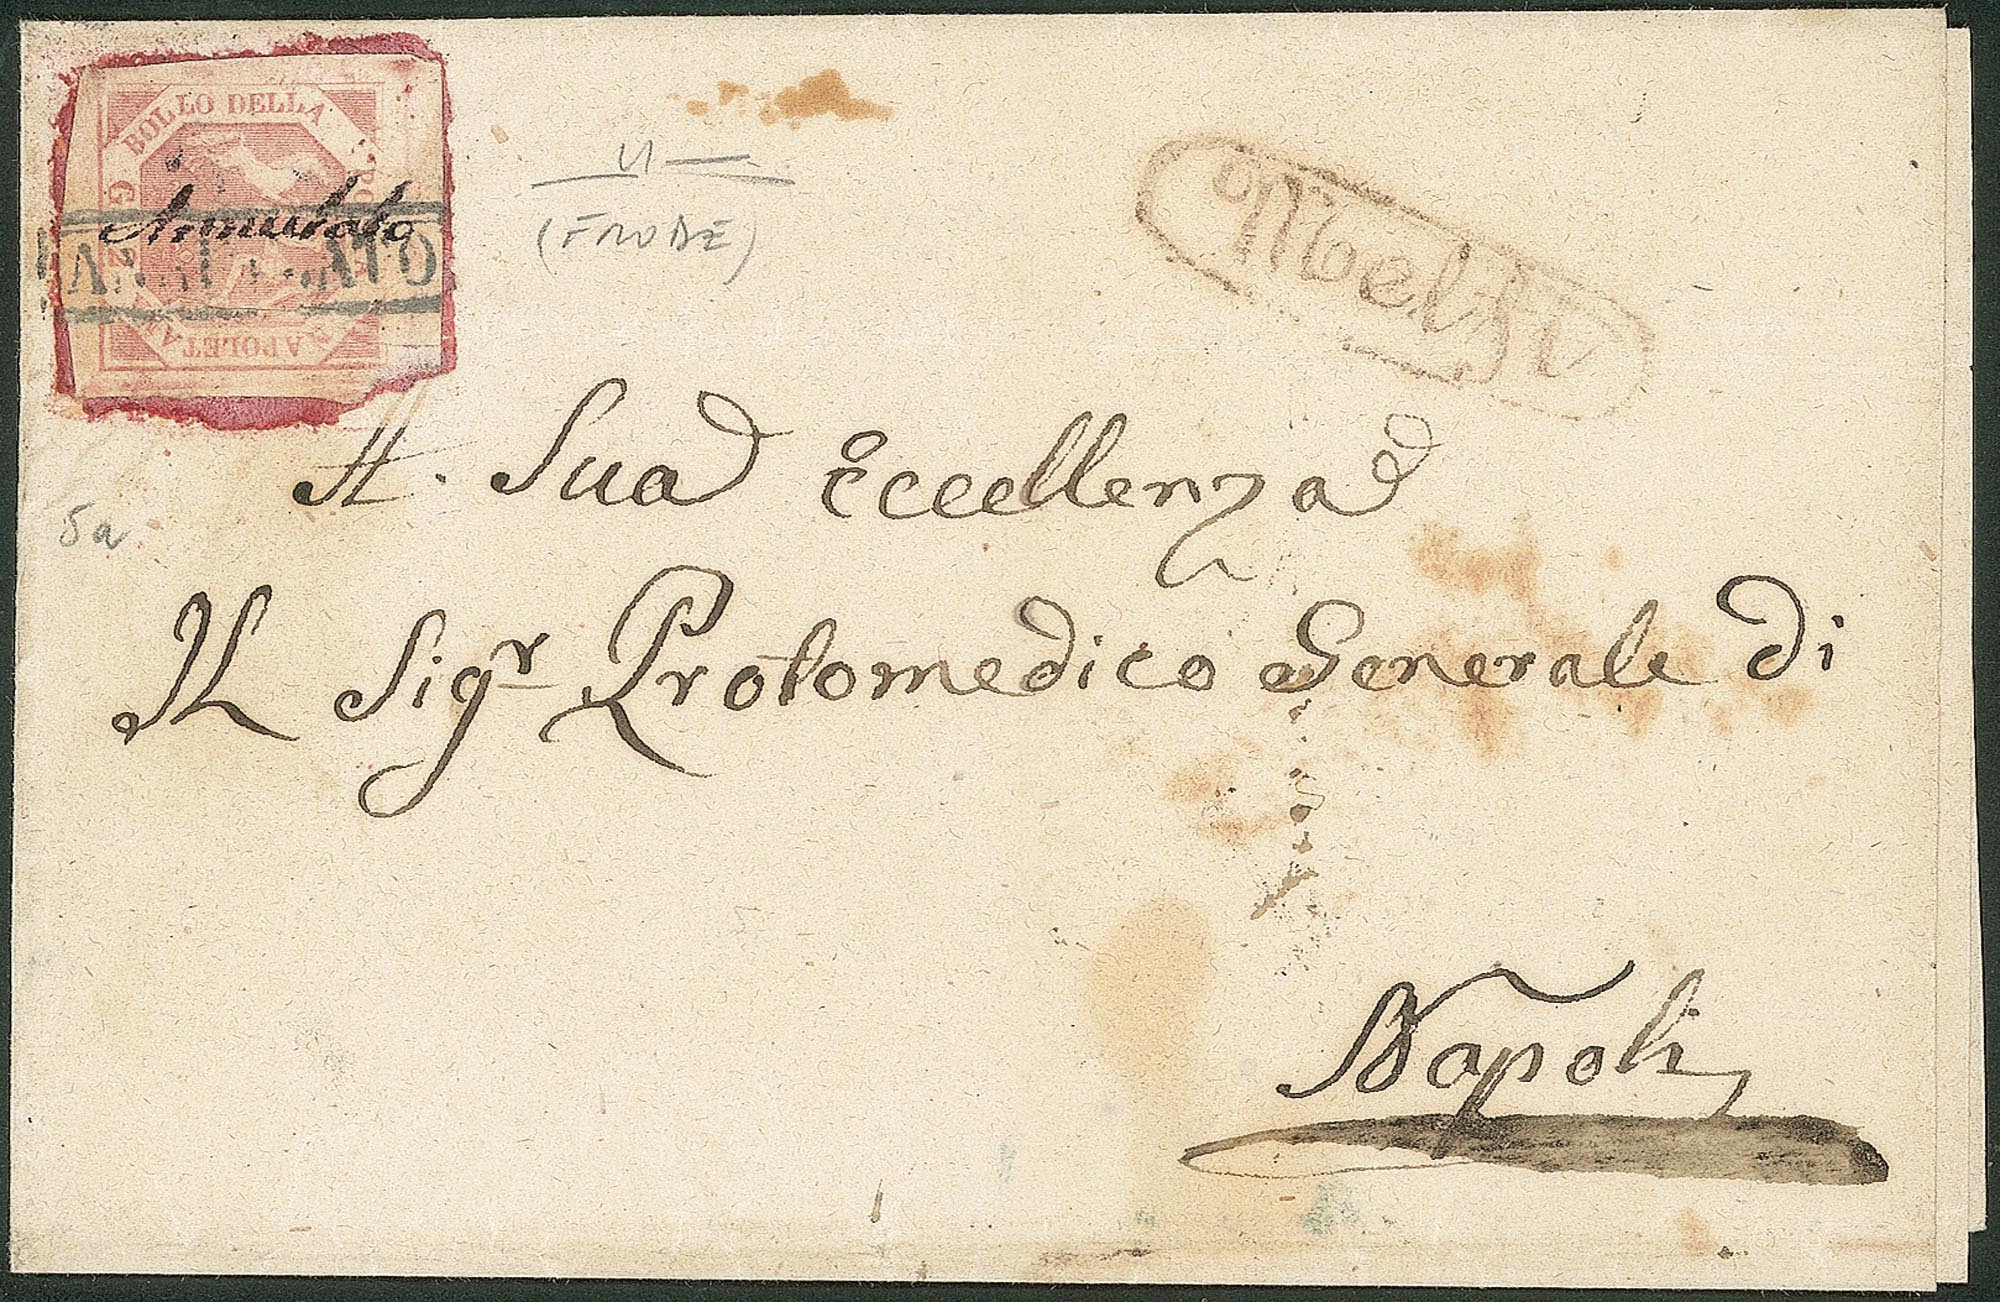 BOLLO DELLA POSTA NAPOLETANA
G 2
Annullato
ANNULLATO
(FRODE)
Melfi
5a
A. Sua Eccellenza
Il Sigr Protomedico Generale di
Napoli